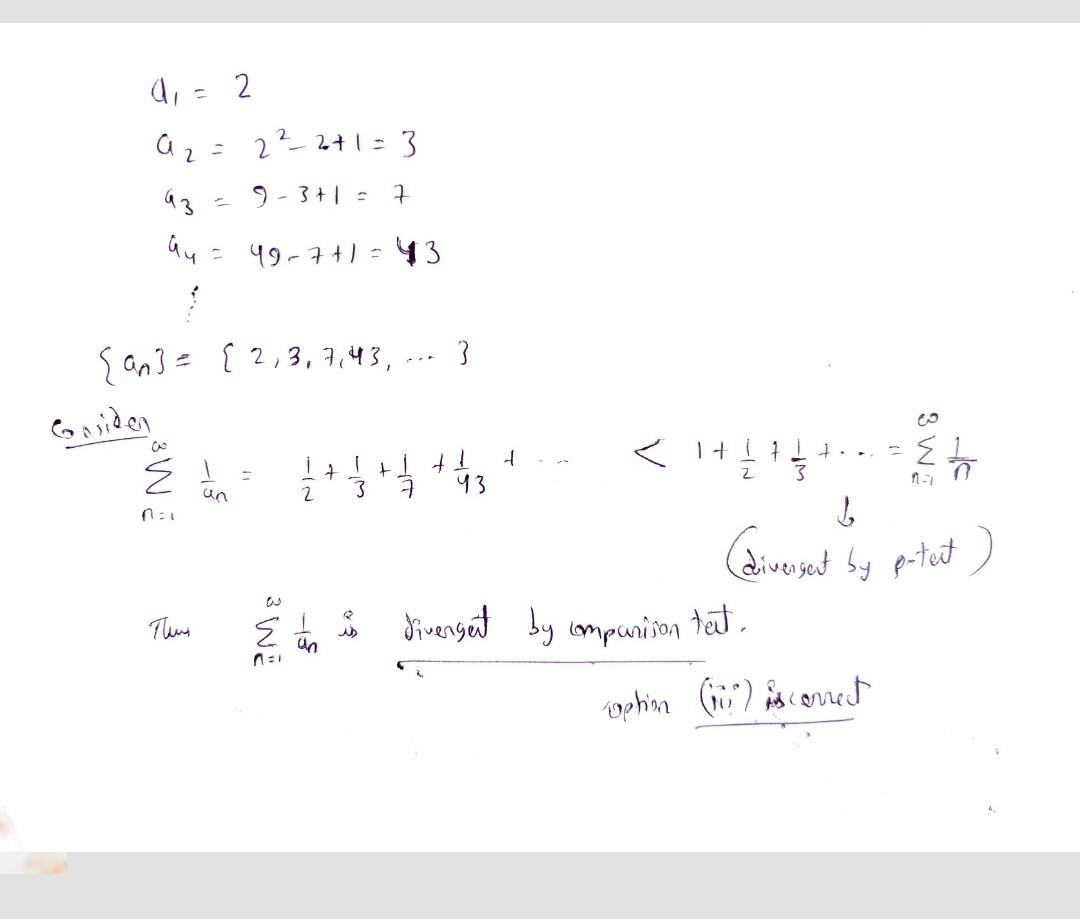 a₁ = 2
a₂ = 2² - 2+1 = 3
a₃ = 9 - 3+1 = 7
a₄ = 49 - 7+1 = 43
⋮
{aₙ} = { 2, 3, 7, 43, ... }
Consider
∞∑n=1 1/aₙ = 1/2 + 1/3 + 1/7 + 1/43 + ... < 1 + 1/2 + 1/3 + ... = ∞∑n=1 1/n
↓
(divergent by p-test)
Thus ∞∑n=1 1/aₙ is divergent by comparison test.
option (iii) is correct